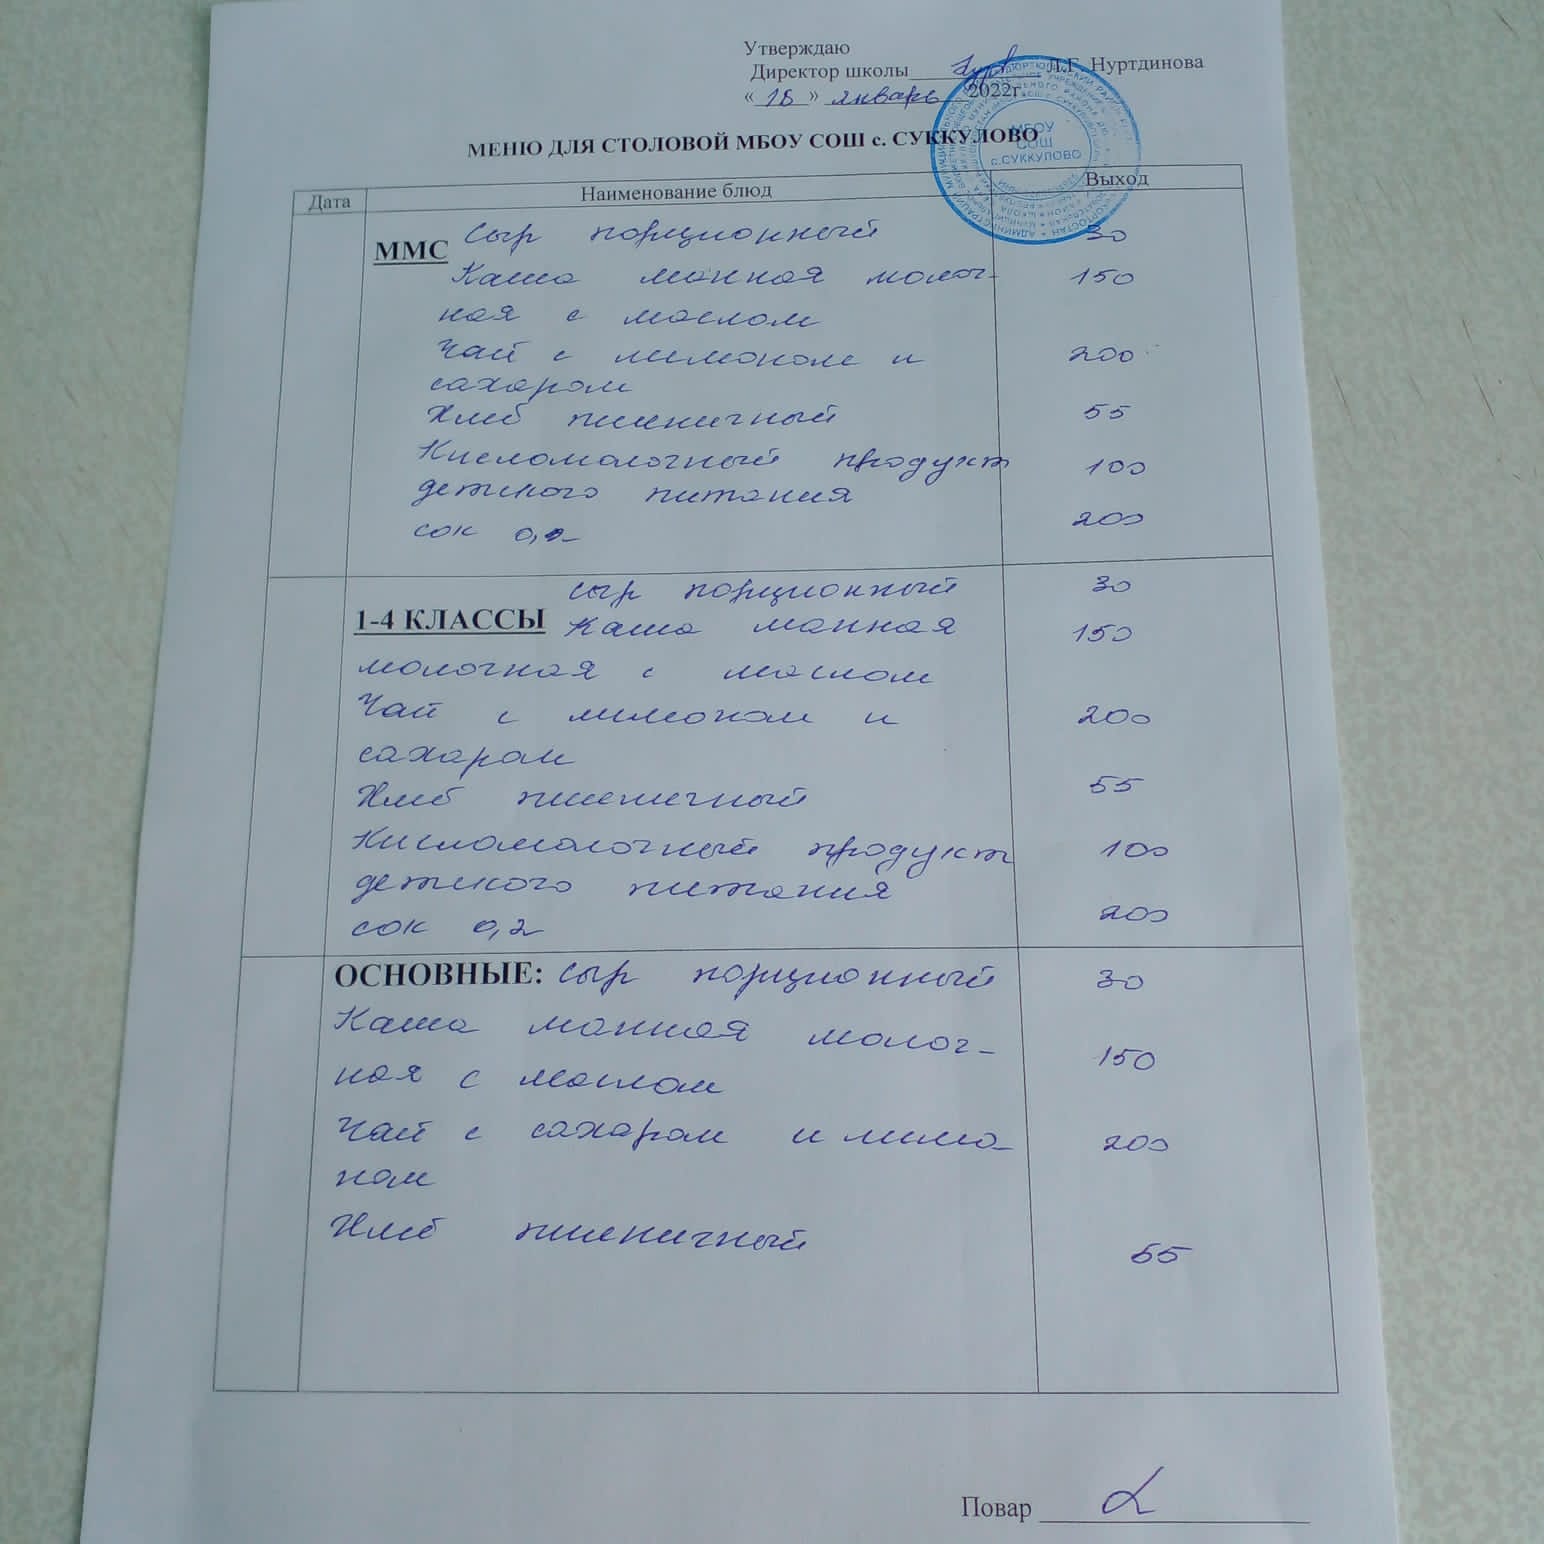 Утверждаю
Директор школы Л.Г. Нуртдинова
« 18 » январь 2022г
МЕНЮ ДЛЯ СТОЛОВОЙ МБОУ СОШ с. СУККУЛОВО
МБОУ
СОШ
с.СУККУЛОВО
Дата Наименование блюд Выход
ММС сыр порционный 30
Каша манная молоч- 150
ная с маслом
Чай с лимоном и 200
сахаром
Хлеб пшеничный 55
Кисломолочный продукт 100
детского питания
сок 0,2 200
1-4 КЛАССЫ сыр порционный 30
Каша манная 150
молочная с маслом
Чай с лимоном и 200
сахаром
Хлеб пшеничный 55
Кисломолочный продукт 100
детского питания
сок 0,2 200
ОСНОВНЫЕ: сыр порционный 30
Каша манная молоч- 150
ная с маслом
Чай с сахаром и лимо- 200
ном
Хлеб пшеничный 55
Повар